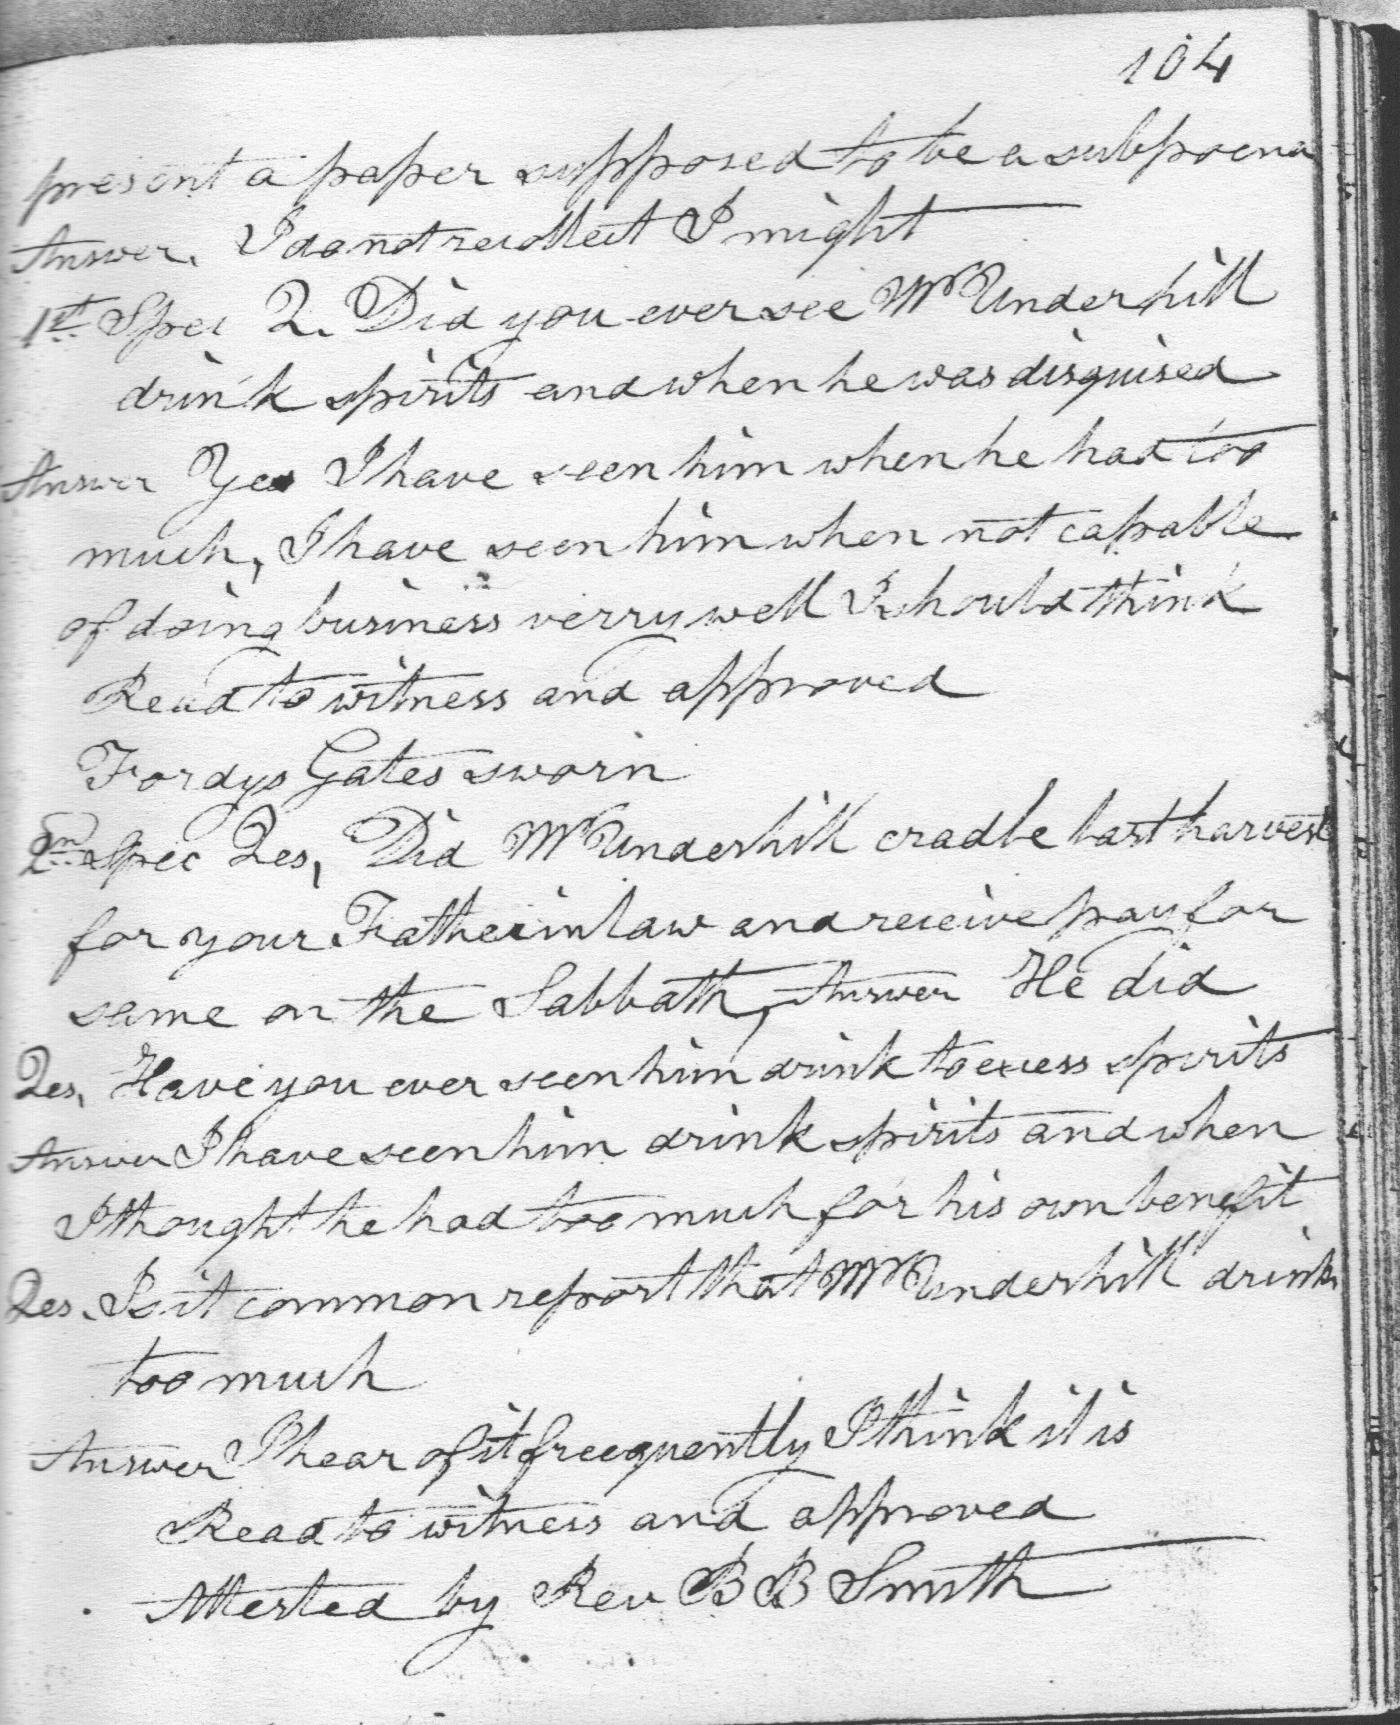 104
present a paper supposed to be a subpoena
Answer. I do not recollect I might
1st Spec 2. Did you ever see Mr Underhill
drink spirits and when he was disguised
Answer Yes I have seen him when he had too
much, I have seen him when not capable
of doing business verry well I should think
Read to witness and approved
Fordys Gates sworn
2nd Spec Qes, Did Mr Underhill cradle last harvest
for your Father in law and receive pay for
same on the Sabbath, Answer He did
Qes, Have you ever seen him drink to excess spirits
Answer I have seen him drink spirits and when
I thought he had too much for his own benefit
Qes. Is it common report that Mr Underhill drinks
too much
Answer I hear of it freequently I think it is
Read to witness and approved
Attested by Rev B B Smith